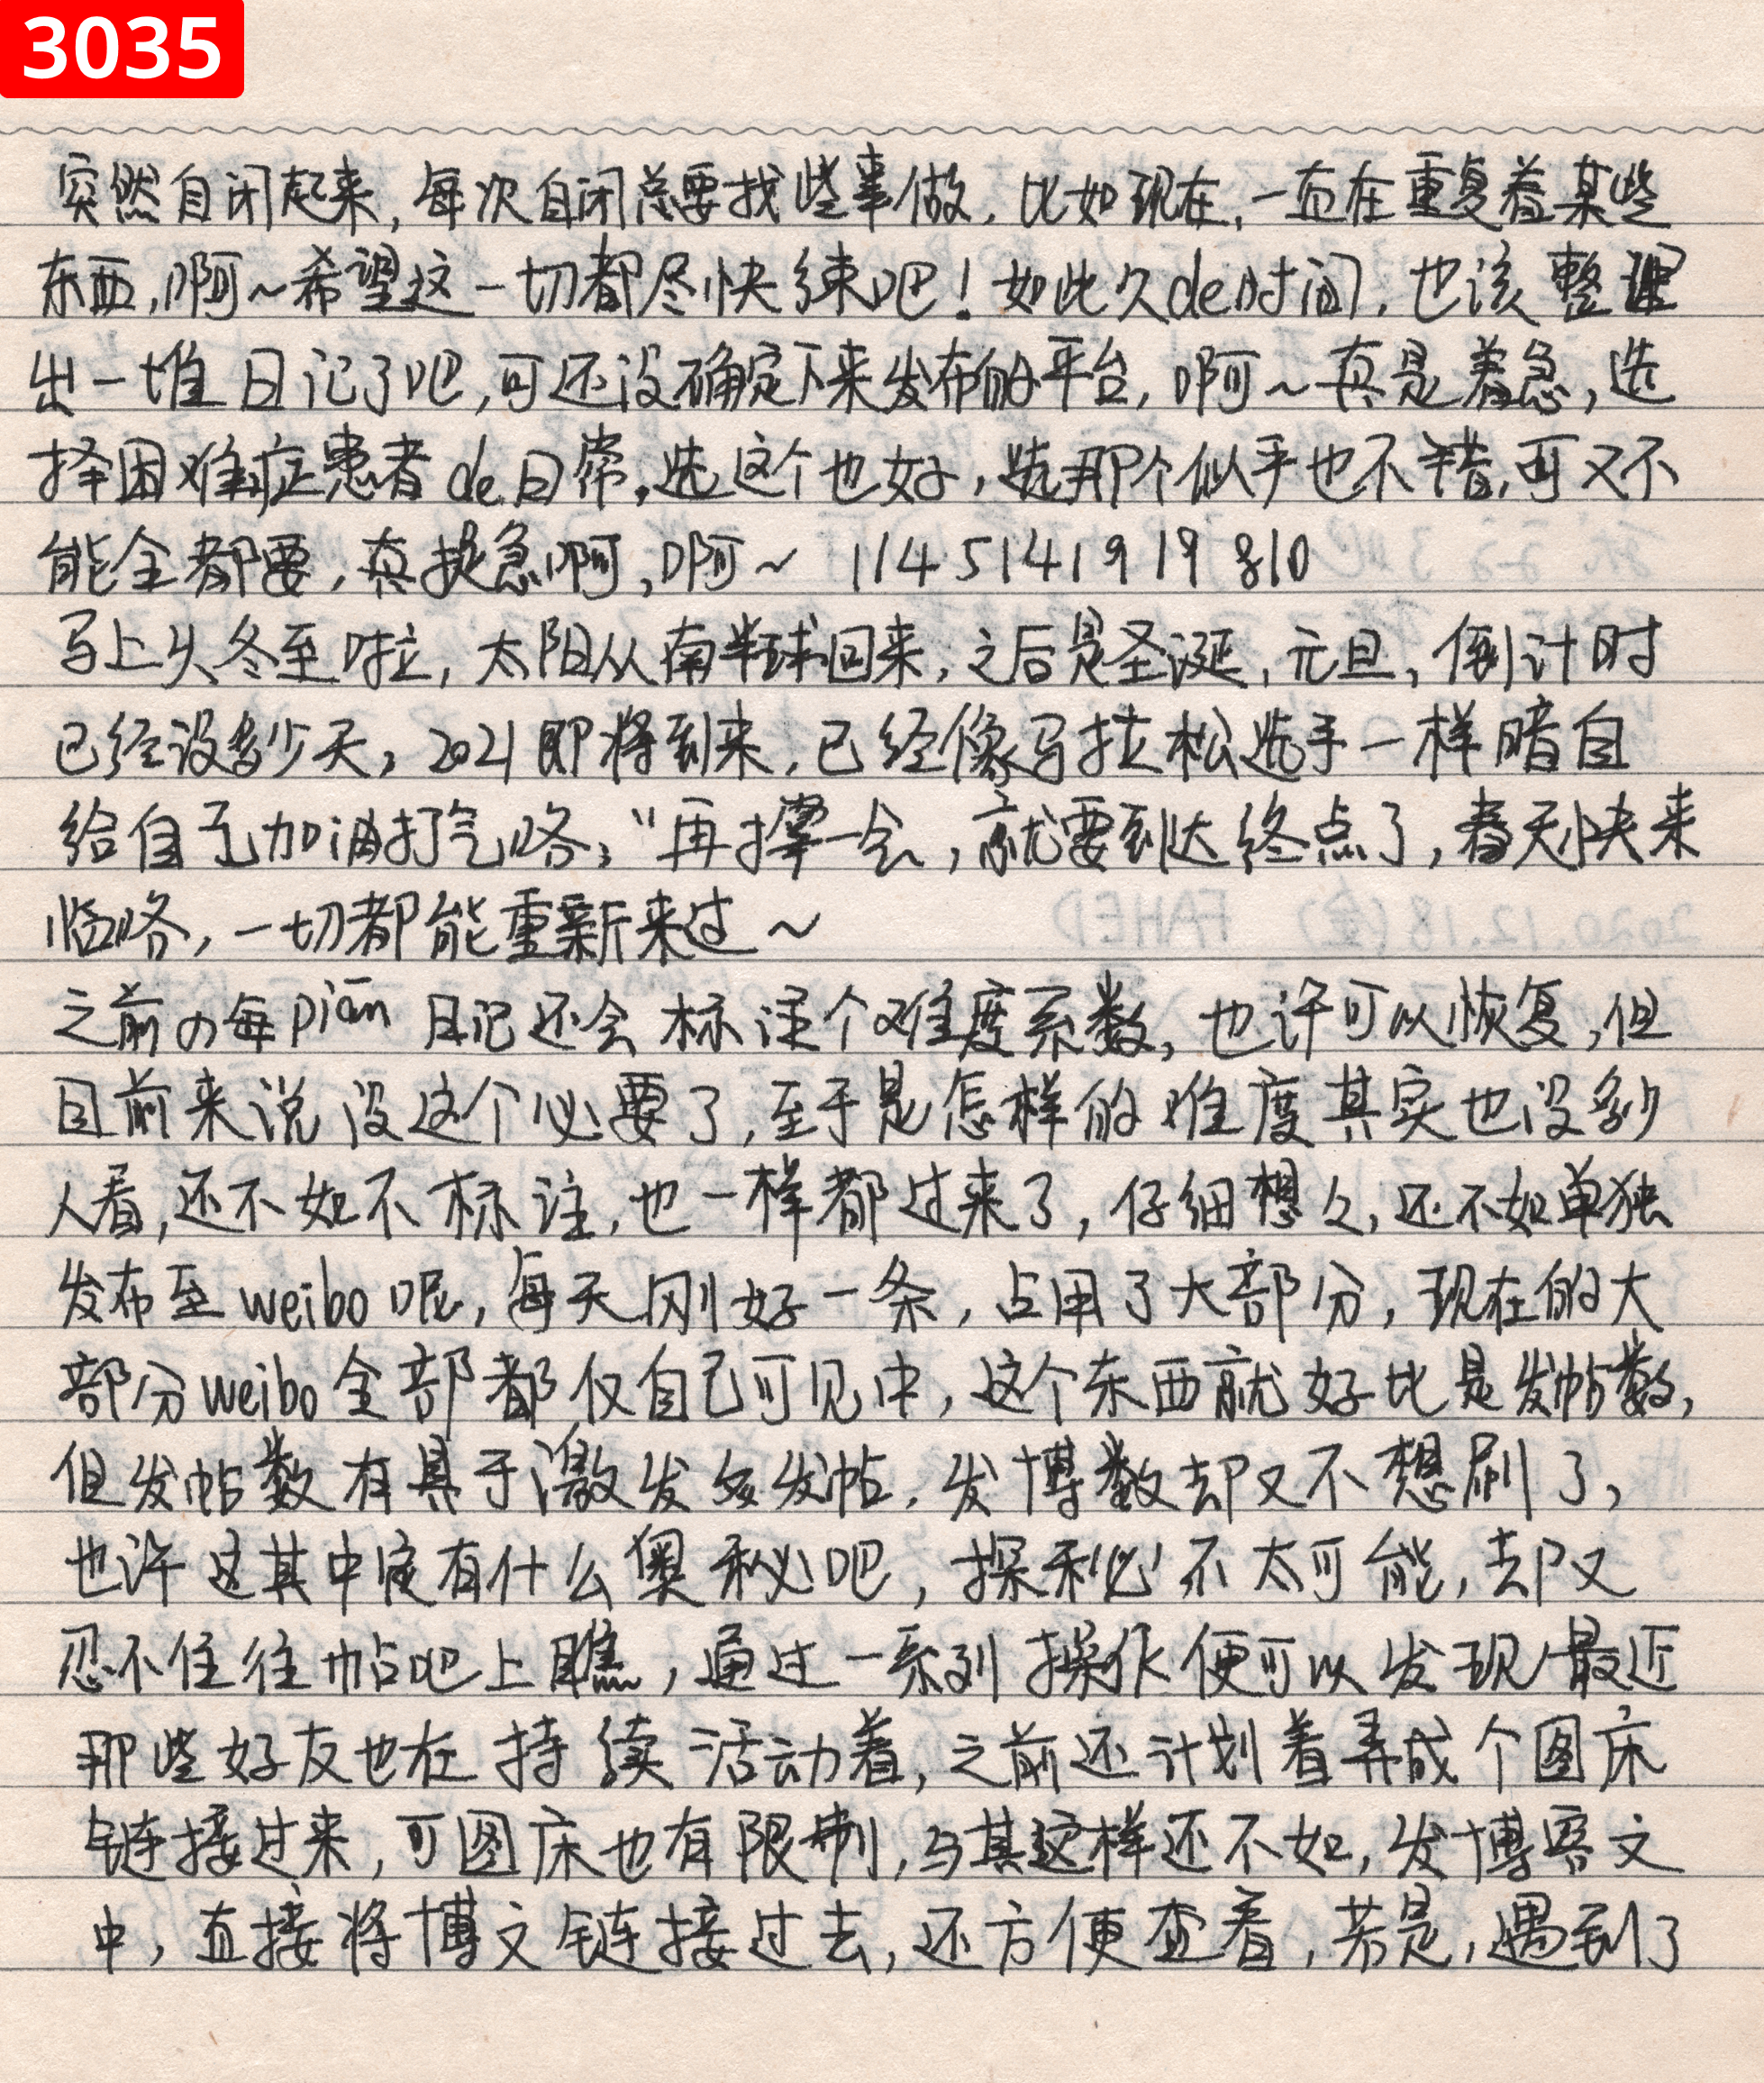 3035
突然自闭起来,每次自闭总要找些事做,比如现在,一直在重复着某些
东西,啊~希望这一切都尽快结束吧!如此久de时间,也该整理
出一堆日记了吧,可还没确定下来发布的平台,啊~真是着急,选
择困难症患者de日常,选这个也好,选那个似乎也不错,可又不
能全都要,真捉急啊,啊~ 1145141919810
马上久冬至啦,太阳从南半球回来,之后是圣诞,元旦,倒计时
已经没多少天,2021即将到来,已经像马拉松选手一样暗自
给自己加油打气咯,"再撑一会,就要到达终点了,春天快来
临咯,一切都能重新来过~
之前の每piān日记还会标注个难度系数,也许可以恢复,但
目前来说没这个必要了,至于是怎样的难度其实也没多少
人看,还不如不标注,也一样都过来了,仔细想々,还不如单独
发布至weibo呢,每天刚好一条,占用了大部分,现在的大
部分weibo全部都仅自己可见中,这个东西就好比是发帖数,
但发帖数有具于激发多发帖,发博数却又不想刷了,
也许这其中定有什么奥秘吧,探秘不太可能,却又
忍不住往帖吧上瞧,通过一系列操作便可以发现最近
那些好友也在持续活动着,之前还计划着弄成个图床
链接过来,可图床也有限制,与其这样还不如,发博客文
中,直接将博文链接过去,还方便查看,若是,遇到了